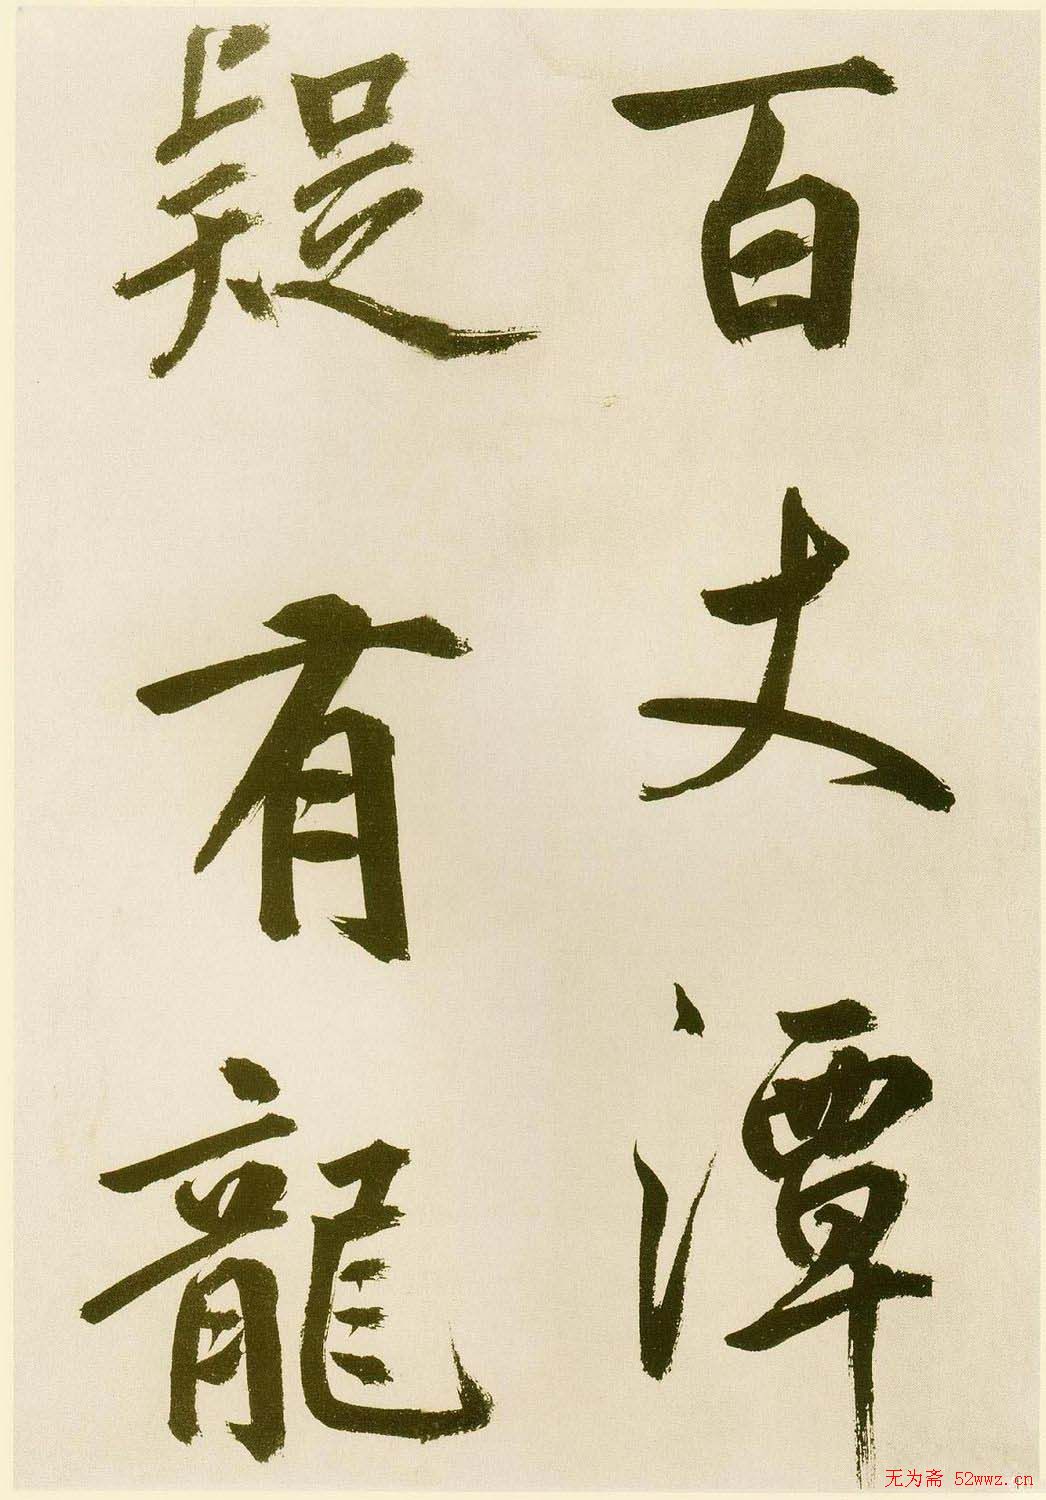 百丈潭
疑有龍
无为斋 52wwz.cn